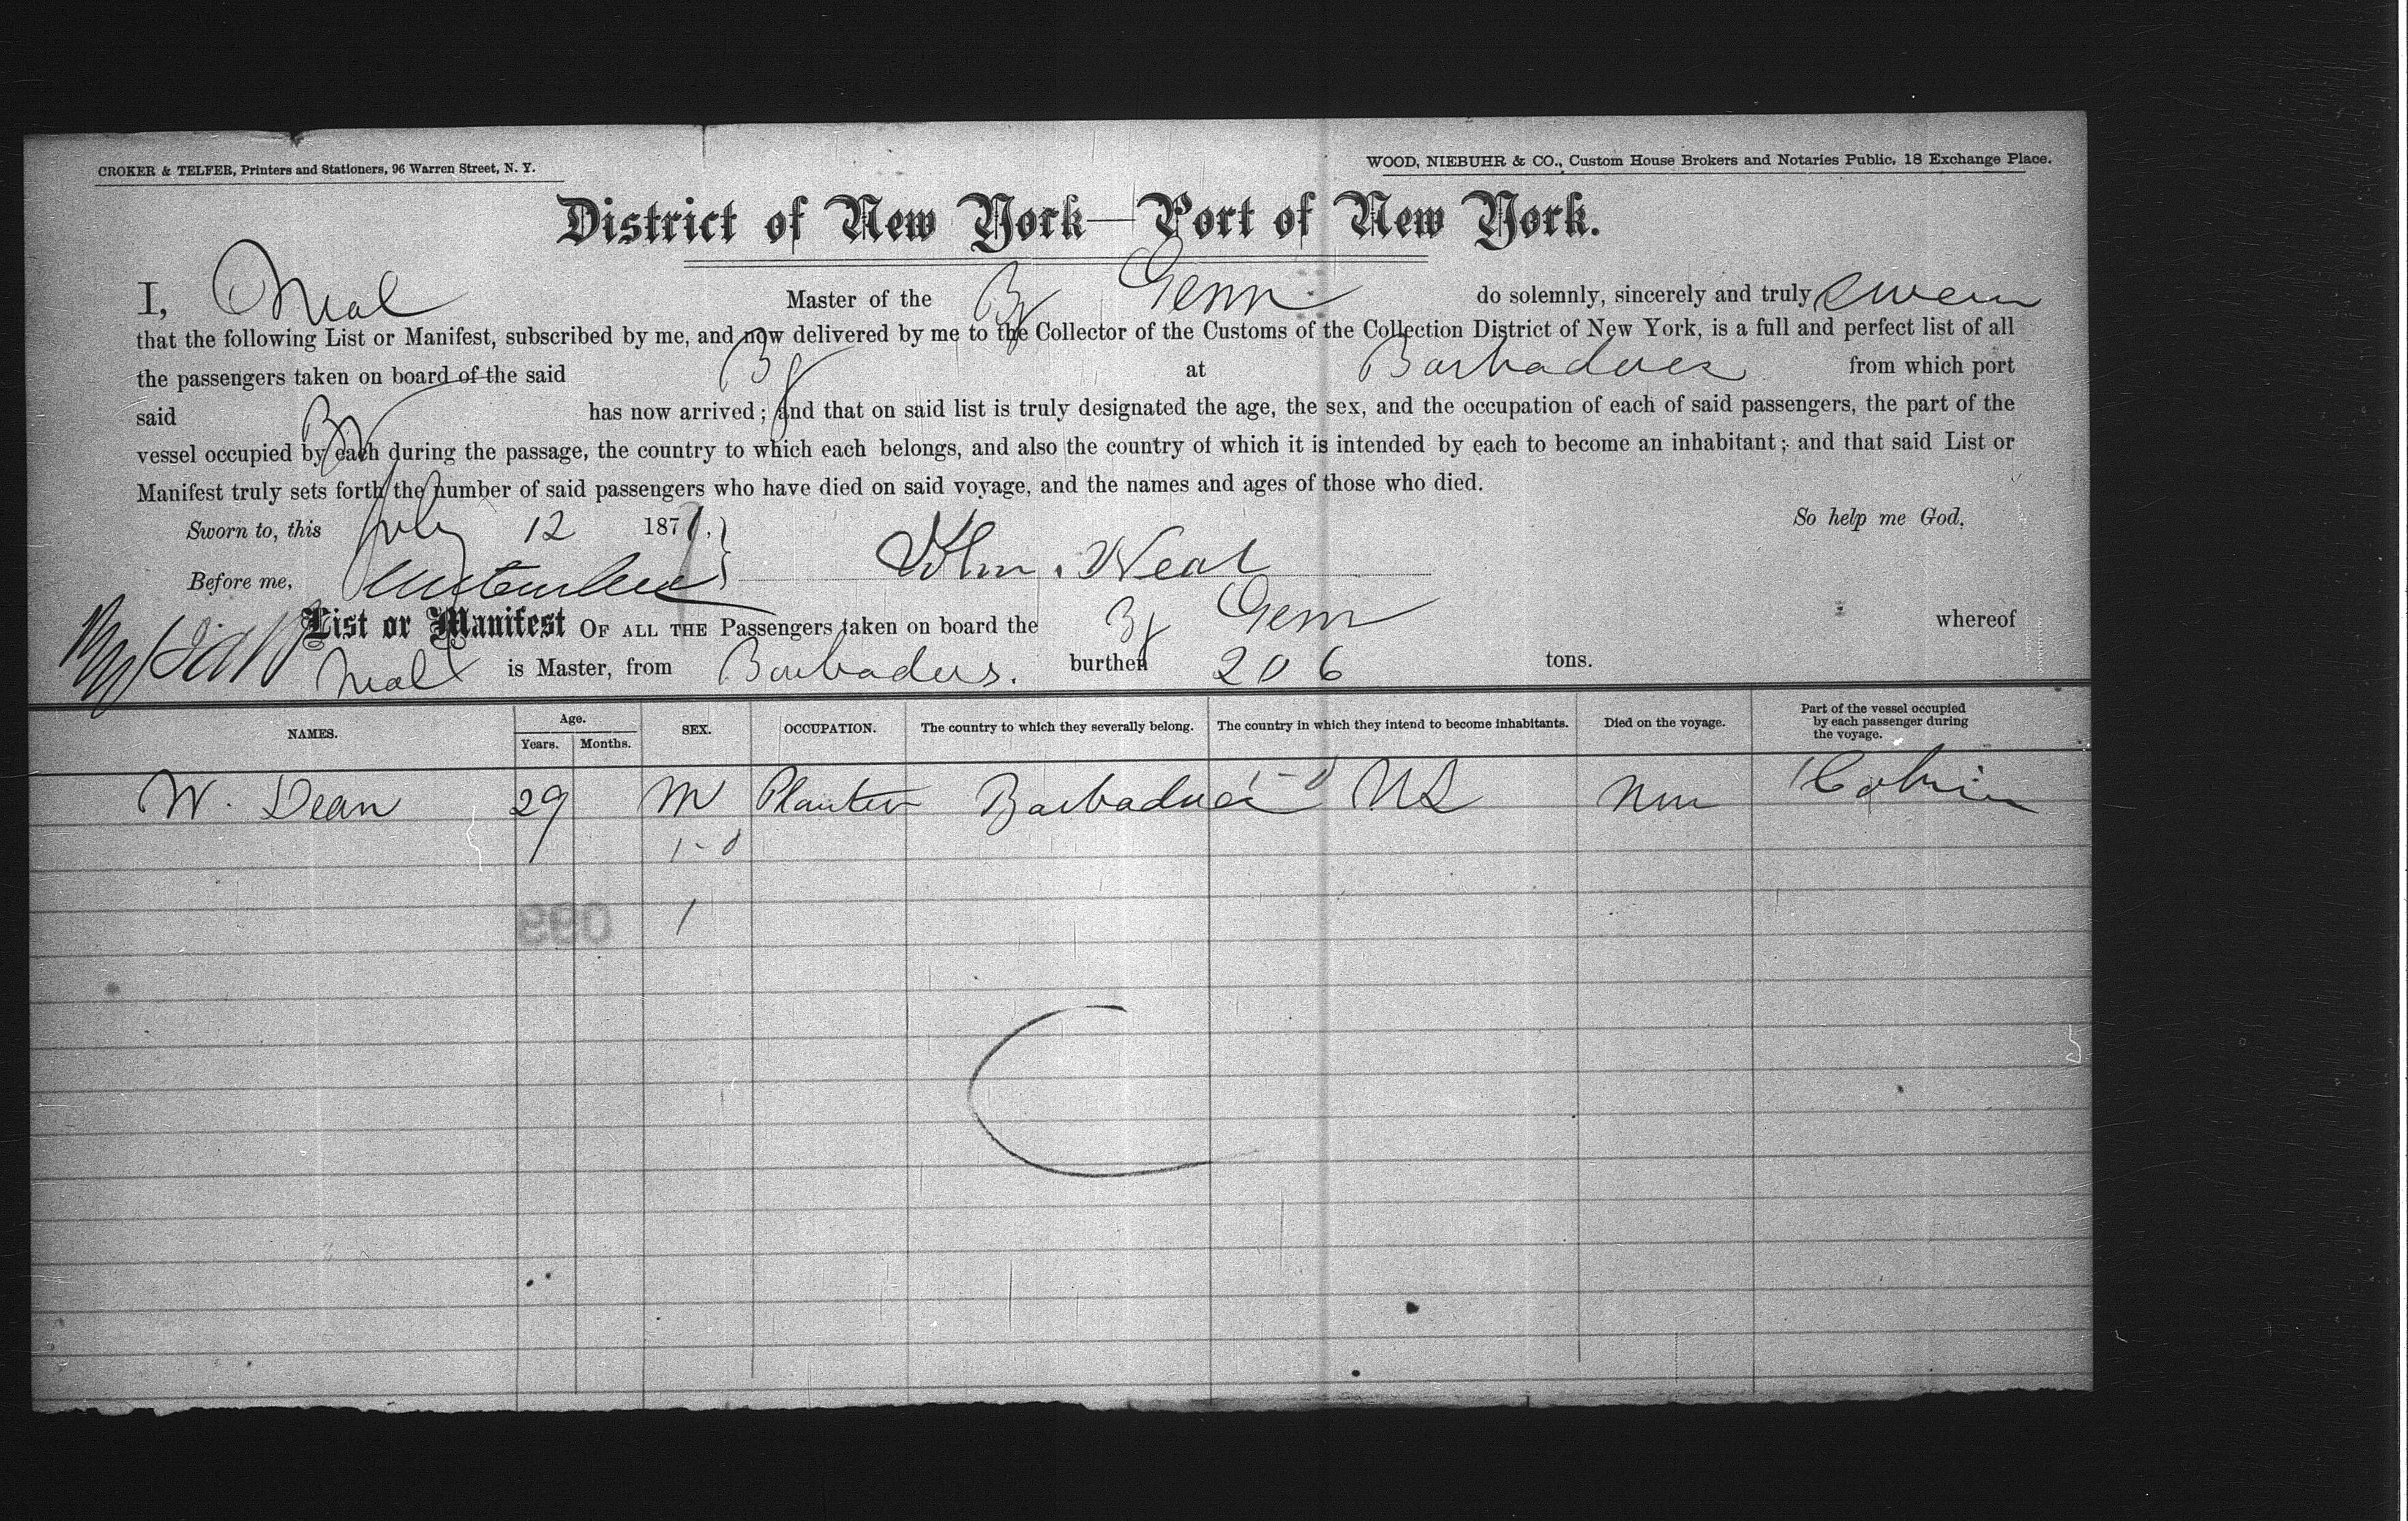 CROKER & TELFER, Printers and Stationers, 96 Warren Street, N. Y.
WOOD, NIEBUHR & CO., Custom House Brokers and Notaries Public, 18 Exchange Place.
District of New York—Port of New York.
I, Neal Master of the Bg Gem do solemnly, sincerely and truly swear
that the following List or Manifest, subscribed by me, and now delivered by me to the Collector of the Customs of the Collection District of New York, is a full and perfect list of all
the passengers taken on board of the said Bg at Barbadoes from which port
said Bg has now arrived; and that on said list is truly designated the age, the sex, and the occupation of each of said passengers, the part of the
vessel occupied by each during the passage, the country to which each belongs, and also the country of which it is intended by each to become an inhabitant; and that said List or
Manifest truly sets forth the number of said passengers who have died on said voyage, and the names and ages of those who died.
Sworn to, this July 12 1877. So help me God,
Before me, John Neal
List or Manifest OF ALL THE Passengers taken on board the Bg Gem whereof
Neal is Master, from Barbadoes. burthen 206 tons.
NAMES. Age. Years. Months. SEX. OCCUPATION. The country to which they severally belong. The country in which they intend to become inhabitants. Died on the voyage. Part of the vessel occupied by each passenger during the voyage.
W. Dean 29 M Planter Barbadoes 1-0 US Cabin
1 - 0
099 1